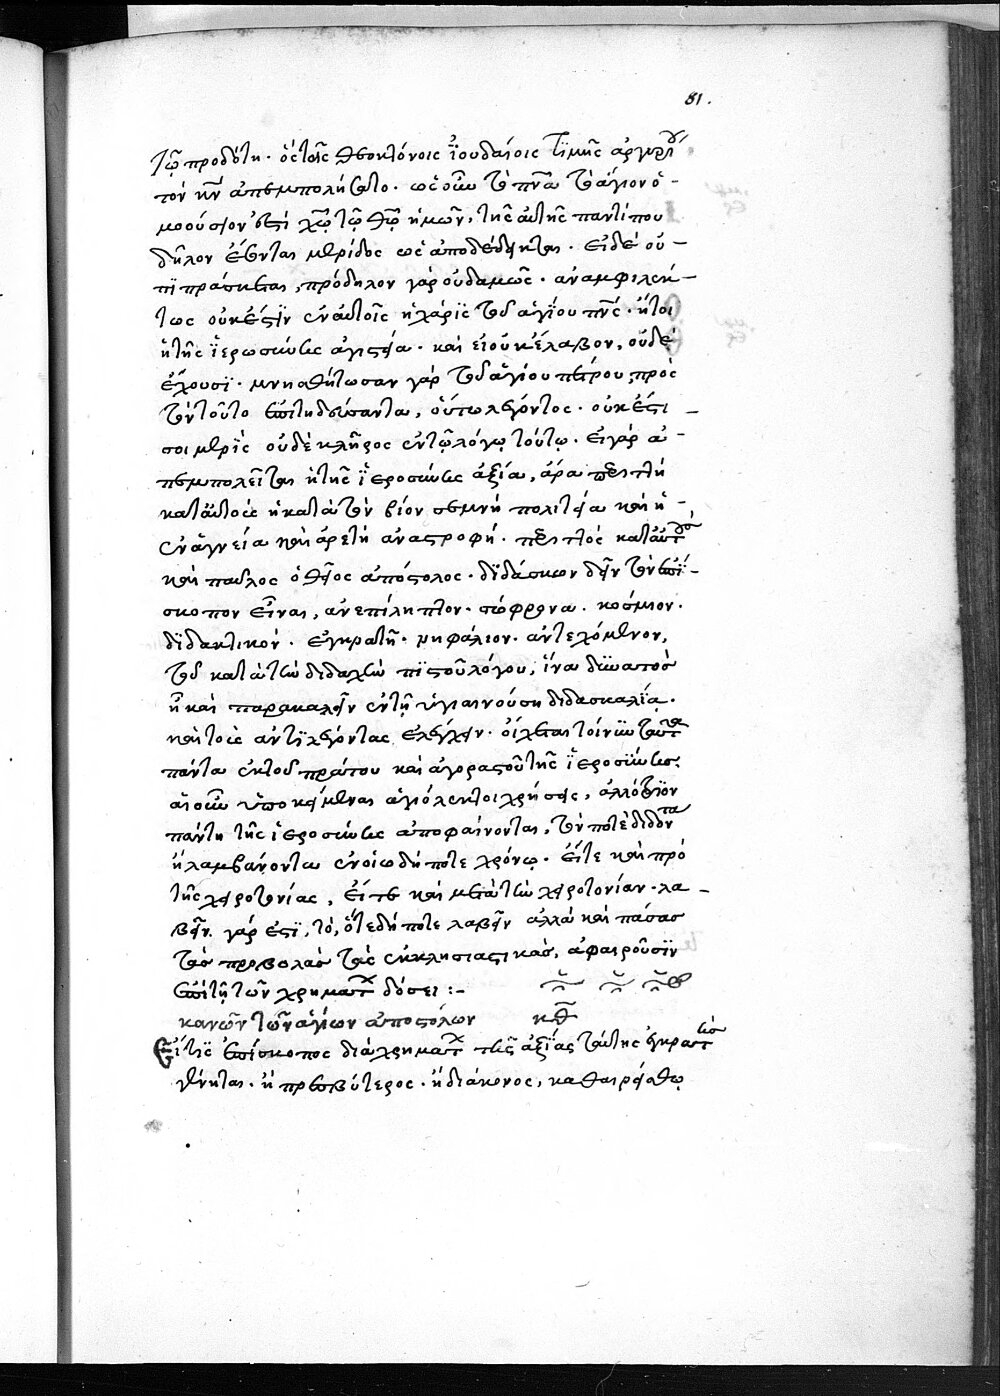 81.
τῷ προδότῃ· ὁς τοῖς θεοκτόνοις ἰουδαίοις τιμῆς ἀργυρίου
τὸν κν ἀπεμπολήσατο· ὡς οὖν τὸ πνα τὸ ἅγιον ὁ-
μοούσιον ἐστὶ χῷ τῷ θῷ ἡμῶν, τῆς αὐτῆς παντί που
δῆλον ἔσονται μερίδος ὡς ἀποδέδεικται· εἰ δὲ οὐ-
πιπράσκεται, πρόδηλον γὰρ οὐδαμῶς· ἀναμφιλέκ-
τως οὐκ ἔστιν ἐν αὐτοῖς ἡ χάρις τοῦ ἁγίου πνς· ἤτοι
ἡ τῆς ἱερωσύνης ἁγιστεία· καὶ εἰ οὐκ ἔλαβον, οὐδὲ
ἔχουσι· μνησθήτωσαν γὰρ τοῦ ἁγίου πέτρου, πρὸς
τὸν τοῦτο ἐπιτηδεύσαντα, οὕτω λέγοντος· οὐκ ἔστι
σοι μερὶς οὐδὲ κλῆρος ἐν τῷ λόγῳ τούτῳ· εἰ γὰρ ἀ-
πεμπολεῖται ἡ τῆς ἱεροσύνης ἀξία, ἄρα περιττὴ
κατ αὐτοὺς ἡ κατὰ τὸν βίον σεμνὴ πολιτεία καὶ ἡ
ἐν ἁγνεία καὶ ἀρετῆ ἀναστροφή· περιττὸς κατ αὐτοὺς
καὶ παῦλος ὁ θεῖος ἀπόστολος· διδάσκων δεῖν τὸν ἐπί-
σκοπον εἶναι, ἀνεπίληπτον· σώφρονα· κόσμιον·
διδακτικόν· ἐγκρατῆ· νηφάλιον· ἀντεχόμενον,
τοῦ κατὰ τὴν διδαχὴν πιστοῦ λόγου, ἵνα δυνατὸς
ἦ καὶ παρακαλεῖν ἐν τῆ ὑγιαινούση διδασκαλία·
καὶ τοὺς ἀντιλέγοντας ἐλέγχειν· οἴχεται τοίνυν ταῦτα
πάντα ἐκ τοῦ πράτου καὶ ἀγοραστοῦ τῆς ἱεροσύνης.
αἱ οὖν ὑποκείμεναι ἁγιόλεκτοι χρήσεις, ἀλλότριον
πάντη τῆς ἱεροσύνης ἀποφαίνονται, τόν ποτε διδόντα
ἢ λαμβάνοντα ἐν οἱωδήποτε χρόνῳ· εἴτε καὶ πρὸ
τῆς χειροτονίας, εἴτε καὶ μετὰ τὴν χειροτονίαν· λα-
βεῖν γάρ ἐστι, τὸ, ὁτεδήποτε λαβεῖν ἀλλὰ καὶ πάσας
τὰς προβολὰς τὰς ἐκκλησιαστικάς, ἀφαιροῦσιν
ἐπὶ τῆ τῶν χρημάτων δόσει :-
κανὼν τῶν ἁγίων ἀποστόλων κθ
Εἴ τις ἐπίσκοπος διὰ χρημάτων τῆς ἀξίας ταύτης ἐγκρατὴς
γένηται· ἢ πρεσβύτερος· ἢ διάκονος, καθαιρείσθω